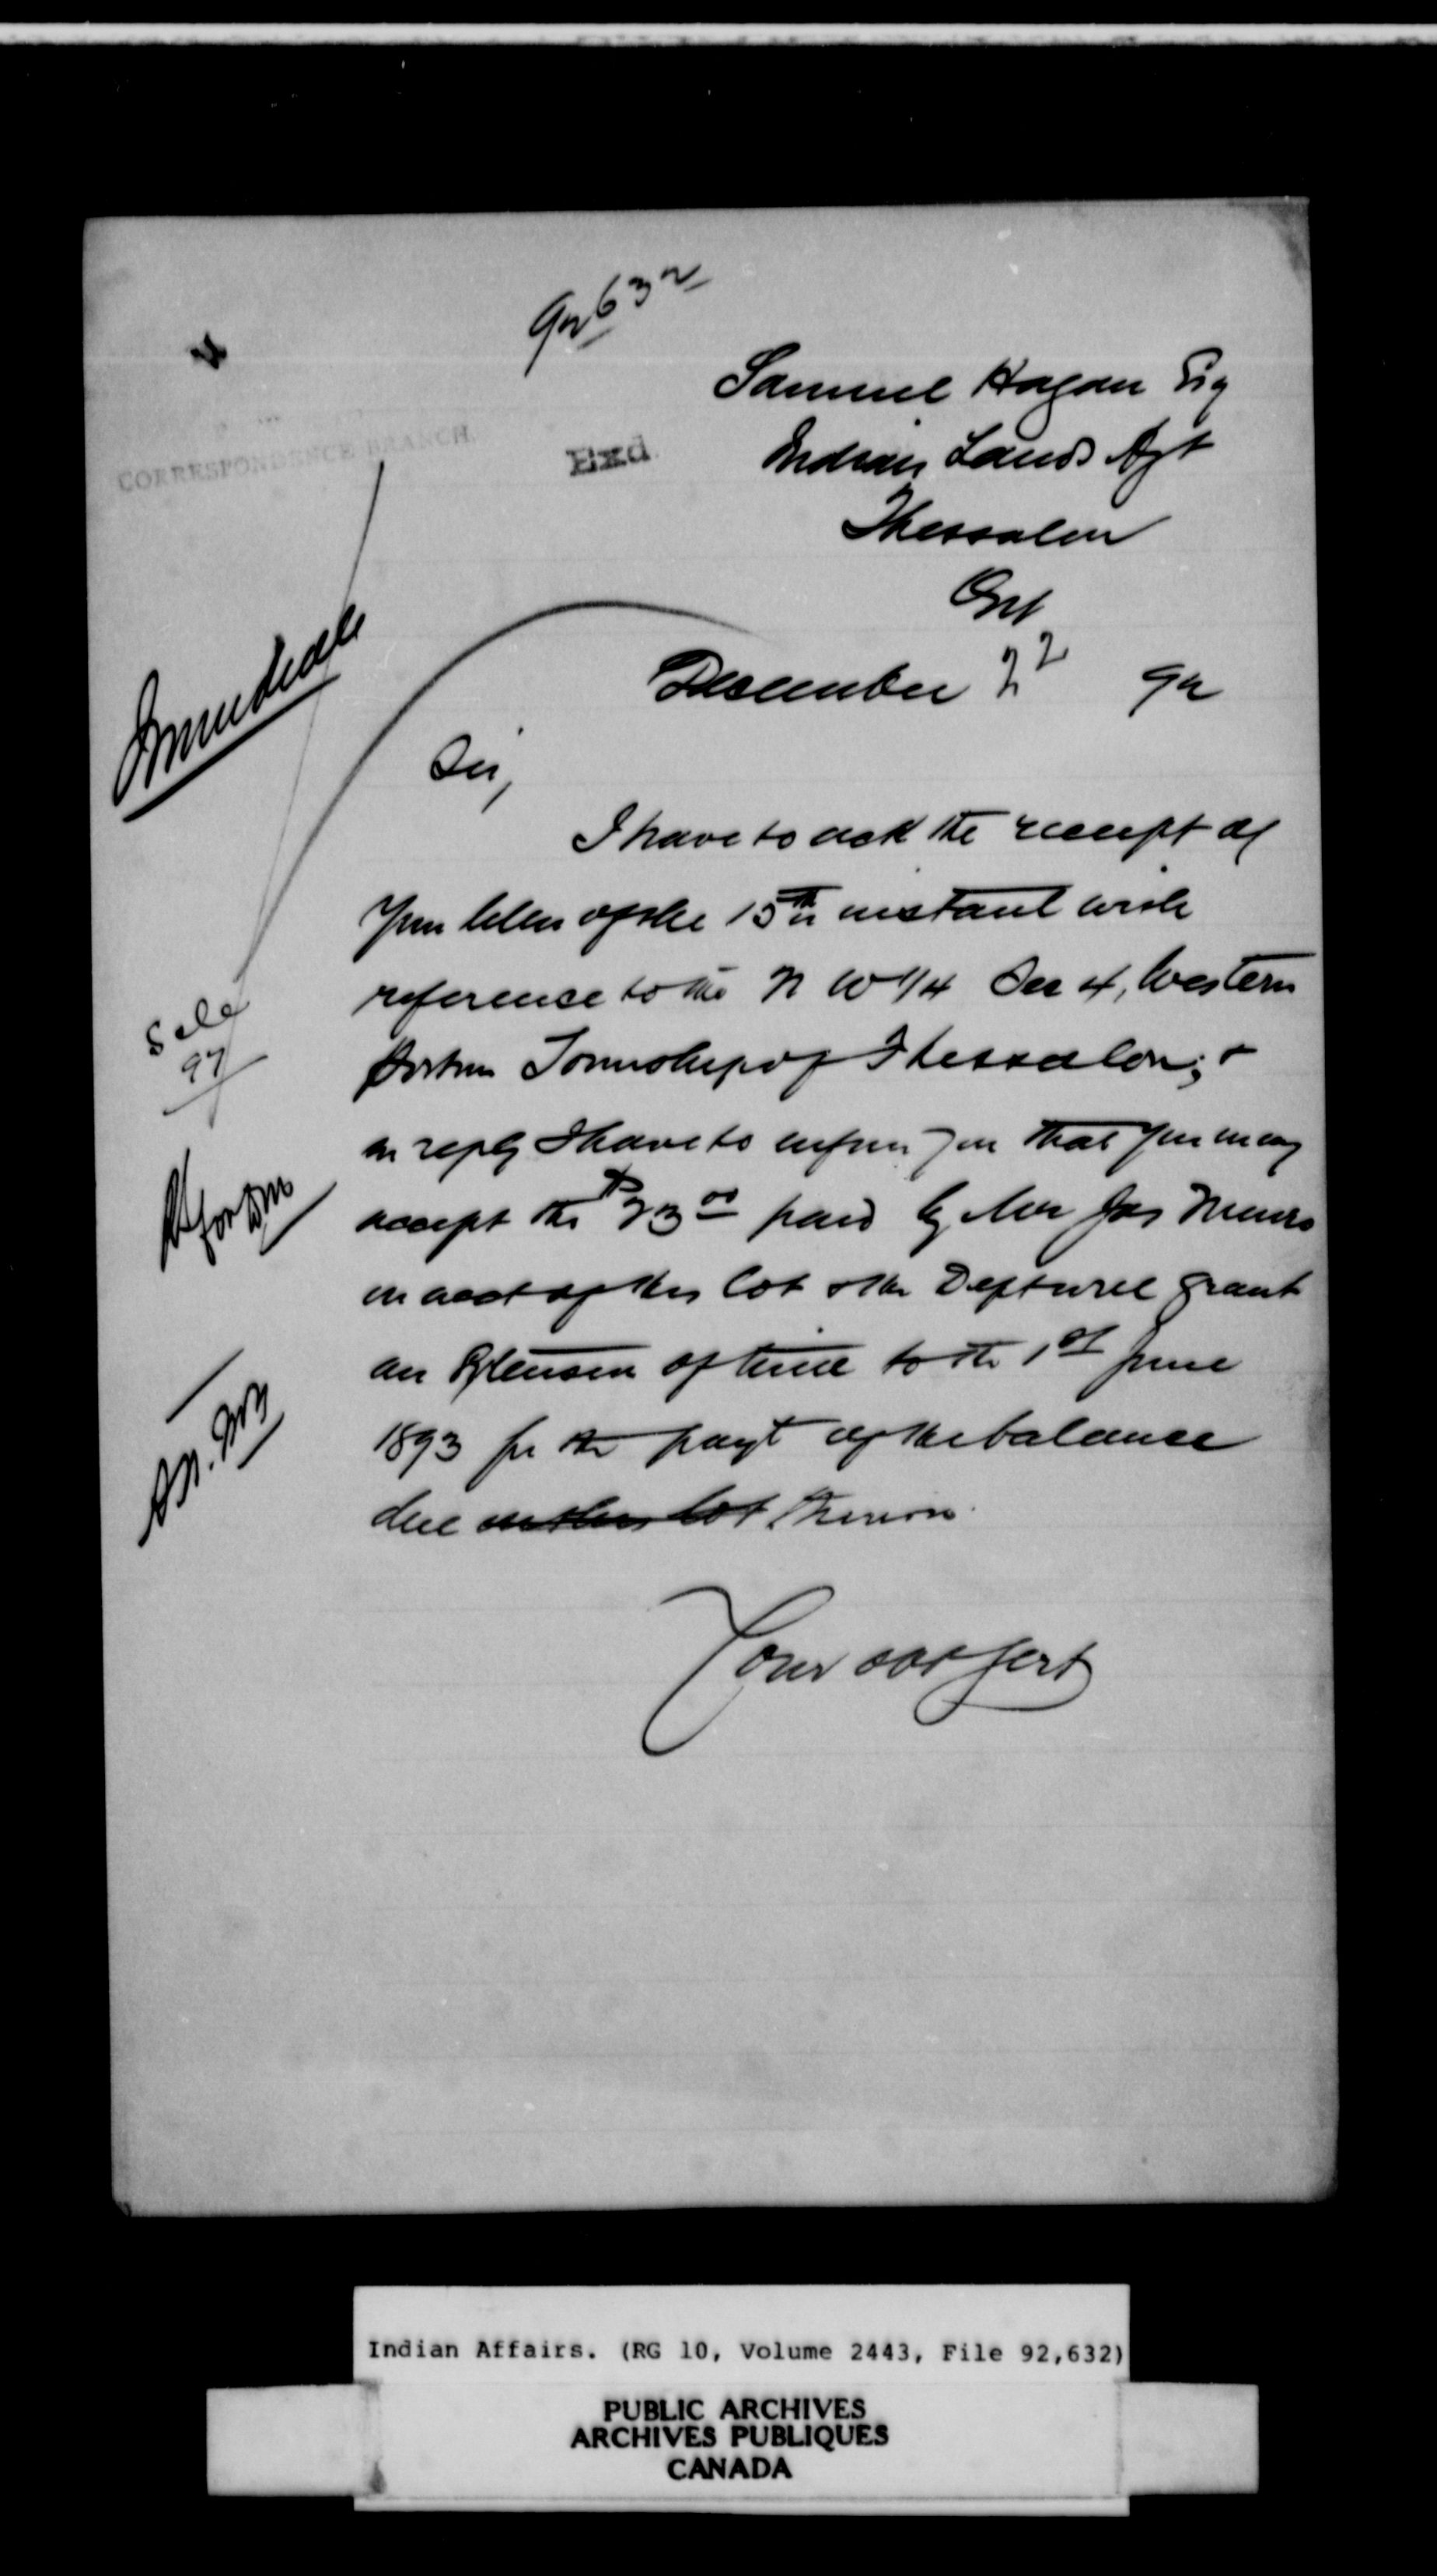 92632
Samuel Hagan Esq
CORRESPONDENCE BRANCH.
Exd.
Indian Lands Agt
Thessalon
Ont
Immediate
December 22 92
Sir,
I have to ack the receipt of
your letter of the 15th instant with
reference to the N W 1/4 Sec 4, Western
portion Township of Thessalon; &
in reply I have to inform you that you may
accept the $23 00 paid by Mr Jas Munro
on acct of this lot & the Dept will grant
an Extension of time to the 1st June
1893 for the payt of the balance
due on this lot thereon.
Sale
97
Your obt Sert
Indian Affairs. (RG 10, Volume 2443, File 92,632)
PUBLIC ARCHIVES
ARCHIVES PUBLIQUES
CANADA